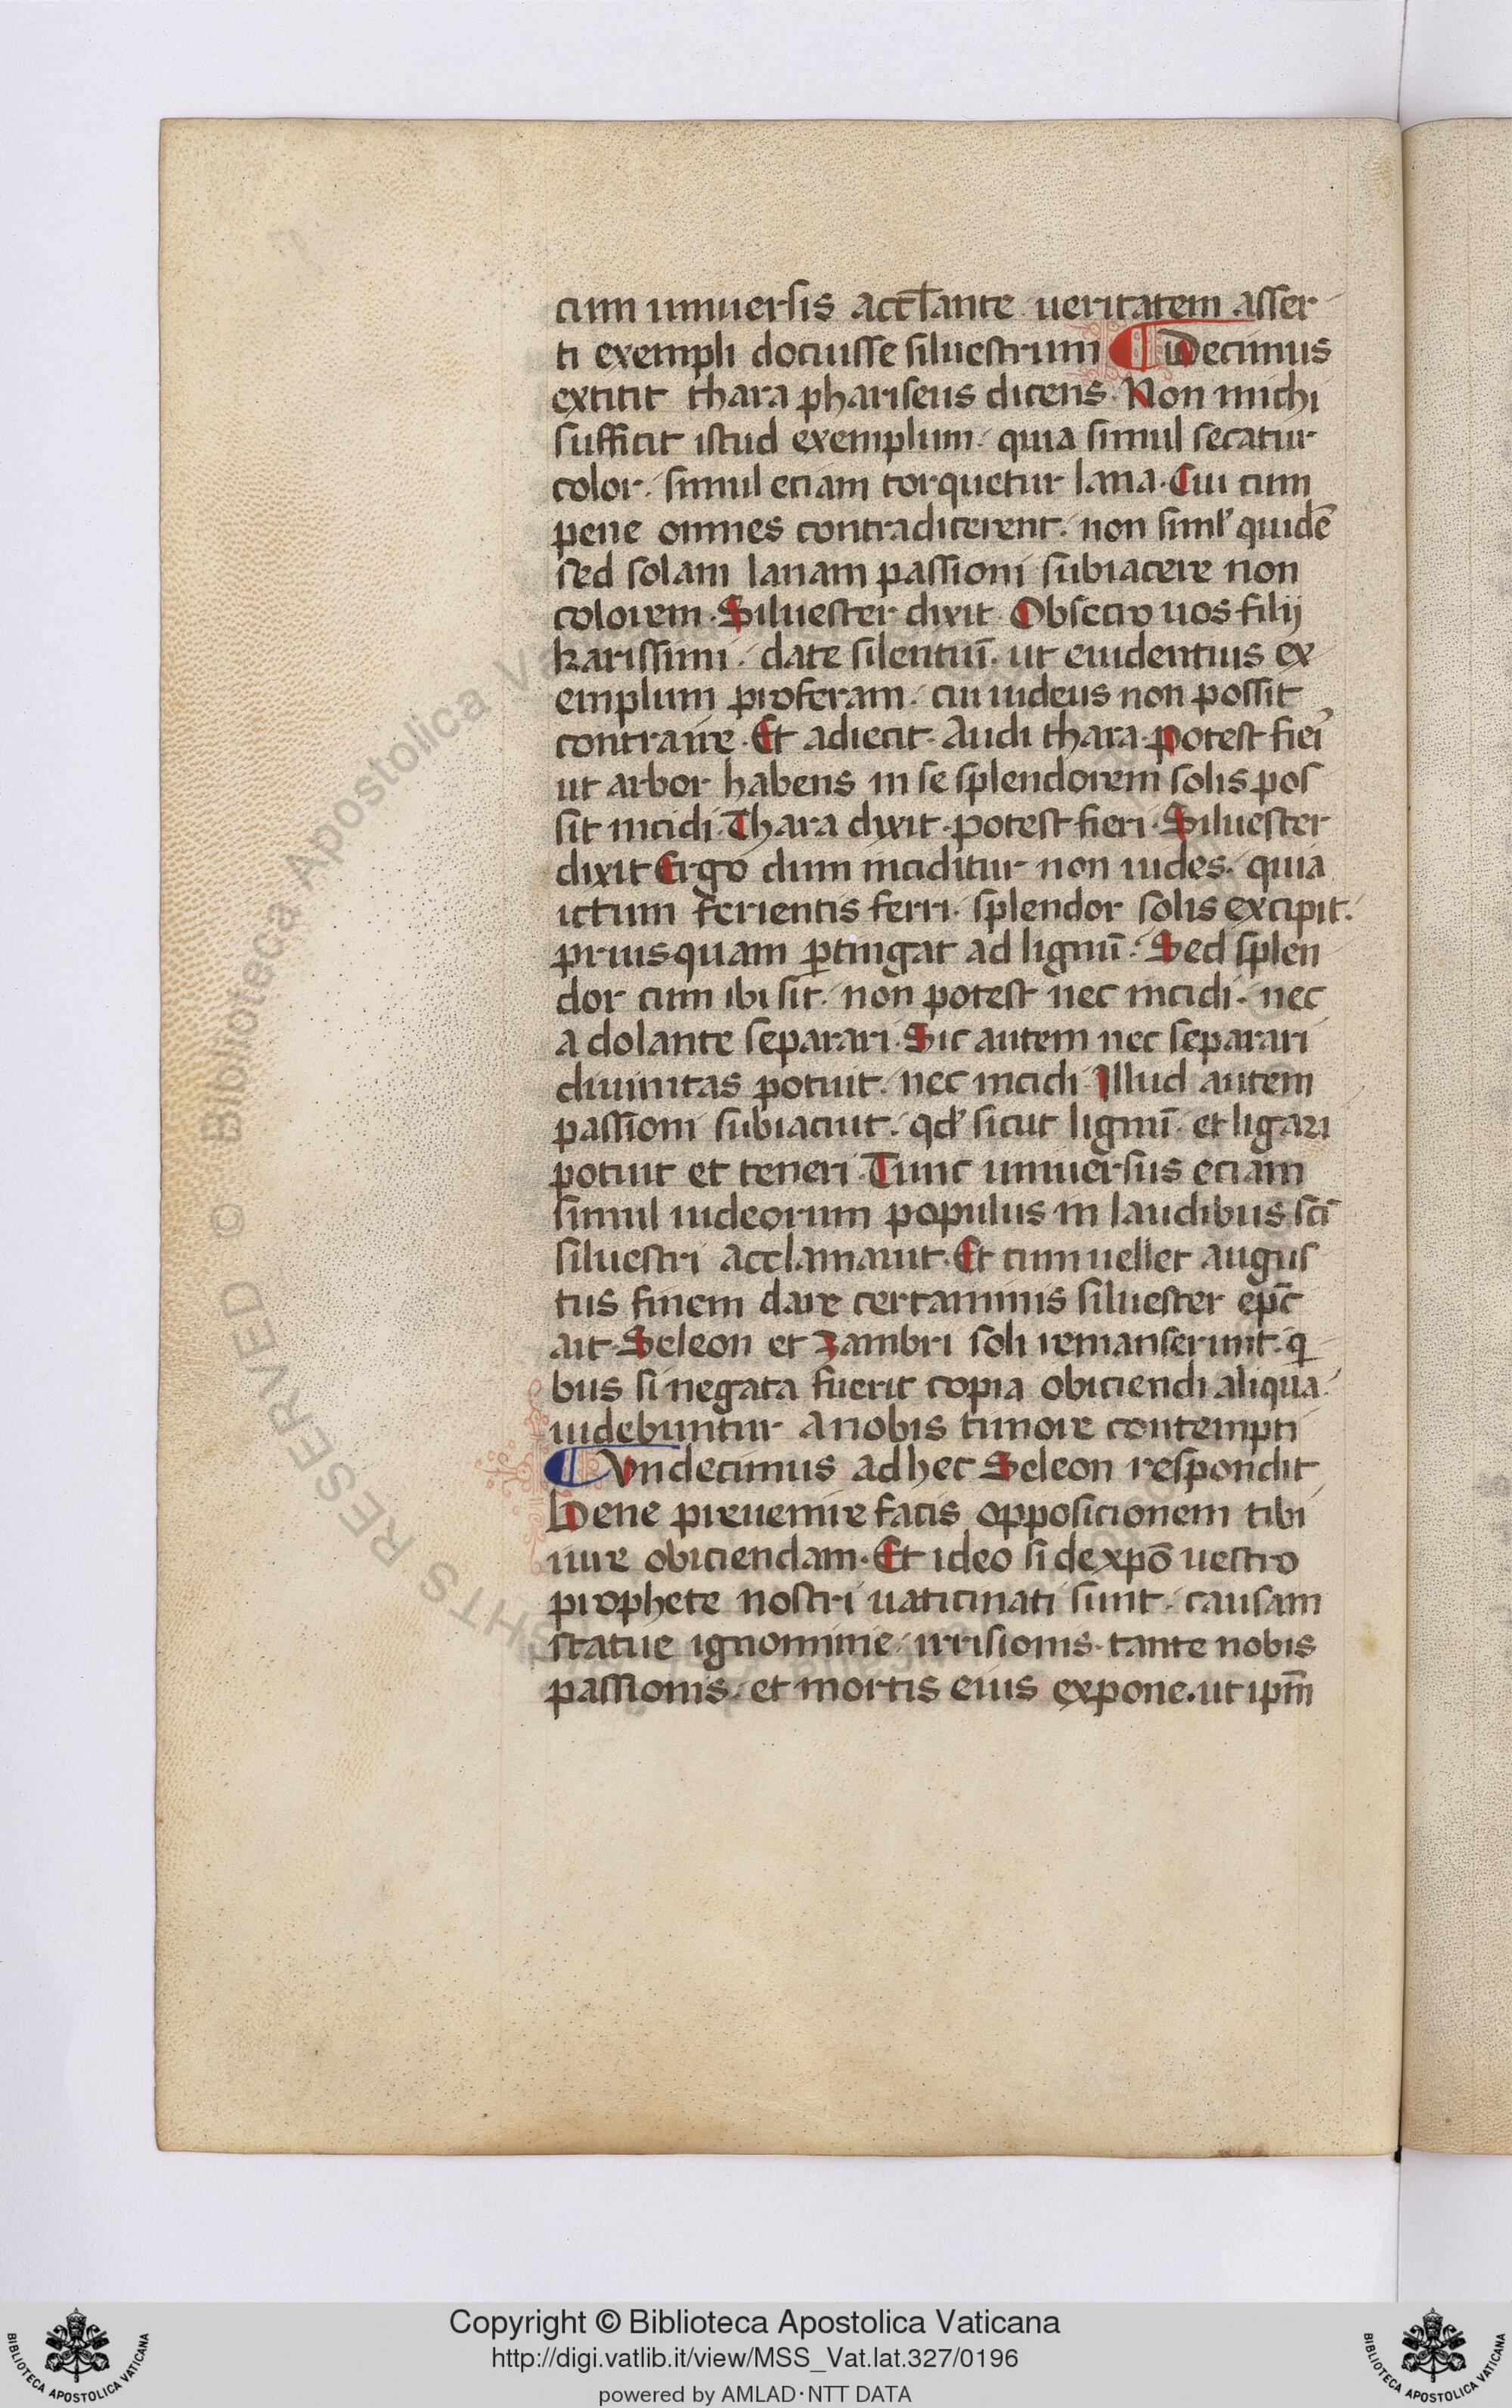 cum uniuersis accl̄ante ueritatem asser
ti exempli docuisse siluestrum ¶ Decimus
extitit thara phariseus dicens. Non michi
sufficit istud exemplum. quia simul secatur
color. simul eciam torquetur lana. Cui cum
pene omnes contradicerent. non siml' quidē
sed solam lanam passioni subiacere non
colorem. Siluester dixit. Obsecro uos filij
karissimi. date silentiū. ut euidentius ex
emplum proferam. cui iudeus non possit
contraire. Et adiecit. Audi thara. potest fieri
ut arbor habens in se splendorem solis pos
sit incidi. Thara dixit. potest fieri. Siluester
dixit Ergo dum inciditur non uides. quia
ictum ferientis ferri. splendor solis excipit.
priusquam ꝑtingat ad lignū. Sed splen
dor cum ibi sit. non potest nec incidi. nec
a dolante separari. Sic autem nec separari
diuinitas potuit. nec incidi. Illud autem
passioni subiacuit. qd' sicut lignū. et ligari
potuit et teneri. Tunc uniuersus eciam
simul iudeorum populus in laudibus sc̄i
siluestri acclamauit. Et cum uellet augus
tus finem dare certaminis siluester ep̄c
ait. Seleon et zambri soli remanserunt. q
bus si negata fuerit copia obiciendi aliqua
uidebuntur a nobis timore contempti
¶ Vndecimus ad hec Seleon respondit
Bene preuenire facis opposicionem tibi
iure obiciendam. Et ideo si de xp̄o uestro
prophete nostri uaticinati sunt. causam
statue ignominie. irrisionis. tante nobis
passionis. et mortis eius expone. ut ip̄m
Biblioteca Apostolica Vaticana
RESERVED © Biblioteca Apostolica Va
Copyright © Biblioteca Apostolica Vaticana
http://digi.vatlib.it/view/MSS_Vat.lat.327/0196
powered by AMLAD·NTT DATA
BIBLIOTECA APOSTOLICA VATICANA
BIBLIOTECA APOSTOLICA VATICANA